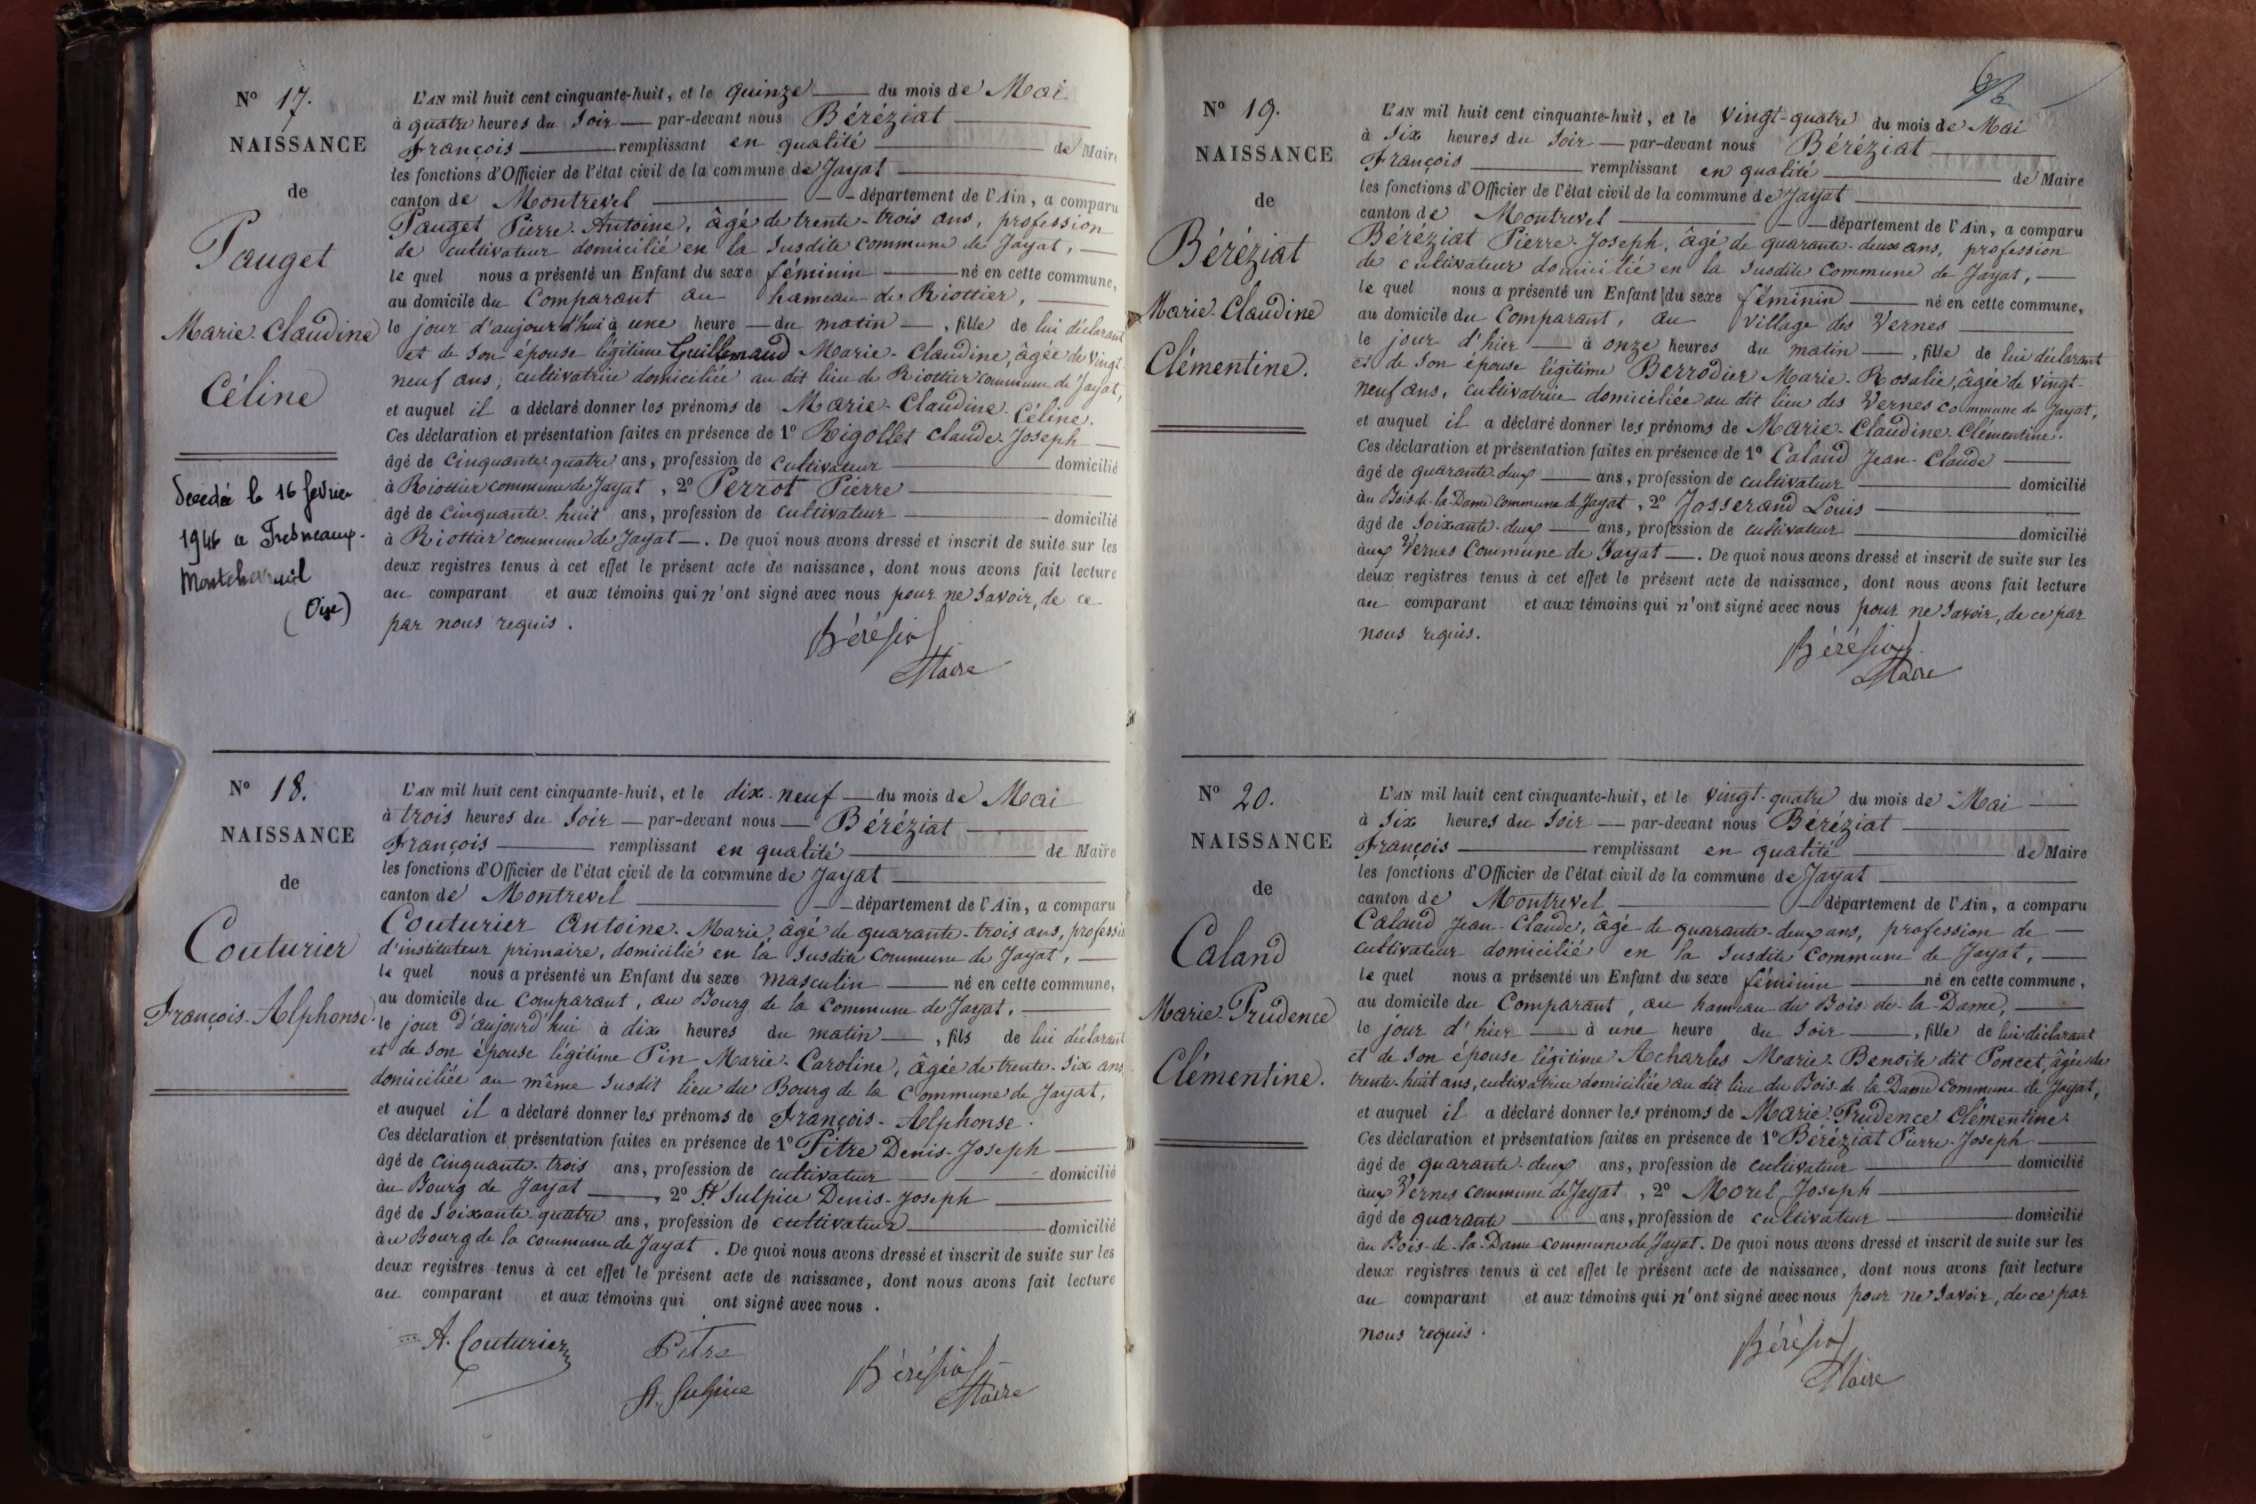 N° 17.
NAISSANCE
de
Pauget
Marie-Claudine
Céline
Décédée le 16 février
1946 a Fresneaux-
Montchevreuil
(Oise)
L'AN mil huit cent cinquante-huit, et le quinze du mois de Mai
à quatre heures du soir par-devant nous Béréziat
François remplissant en qualité de Maire
les fonctions d'Officier de l'état civil de la commune de Jayat
canton de Montrevel département de l'Ain, a comparu
Pauget Pierre-Antoine, âgé de trente-trois ans, profession
de cultivateur domicilié en la susdite commune de Jayat,
le quel nous a présenté un Enfant du sexe féminin né en cette commune,
au domicile du Comparant au hameau de Riottier,
le jour d'aujourd'hui à une heure du matin, fille de lui déclarant
et de son épouse légitime Guillemaud Marie-Claudine, âgée de vingt-
neuf ans, cultivatrice domiciliée au dit lieu de Riottier commune de Jayat,
et auquel il a déclaré donner les prénoms de Marie-Claudine-Céline.
Ces déclaration et présentation faites en présence de 1° Rigollet Claude-Joseph
âgé de cinquante quatre ans, profession de cultivateur domicilié
à Riottier commune de Jayat, 2° Perrot Pierre
âgé de cinquante-huit ans, profession de cultivateur domicilié
à Riottier commune de Jayat. De quoi nous avons dressé et inscrit de suite sur les
deux registres tenus à cet effet le présent acte de naissance, dont nous avons fait lecture
au comparant et aux témoins qui n'ont signé avec nous pour ne savoir, de ce
par nous requis.
Béréziat
Maire
N° 18.
NAISSANCE
de
Couturier
François-Alphonse.
L'AN mil huit cent cinquante-huit, et le dix-neuf du mois de Mai
à trois heures du soir par-devant nous Béréziat
François remplissant en qualité de Maire
les fonctions d'Officier de l'état civil de la commune de Jayat
canton de Montrevel département de l'Ain, a comparu
Couturier Antoine-Marie, âgé de quarante-trois ans, profession
d'instituteur primaire, domicilié en la susdite commune de Jayat,
le quel nous a présenté un Enfant du sexe masculin né en cette commune,
au domicile du comparant, au Bourg de la commune de Jayat,
le jour d'aujourd'hui à dix heures du matin, fils de lui déclarant
et de son épouse légitime Pin Marie-Caroline, âgée de trente-six ans
domiciliée au même susdit lieu du Bourg de la commune de Jayat,
et auquel il a déclaré donner les prénoms de François-Alphonse.
Ces déclaration et présentation faites en présence de 1° Pitre Denis-Joseph
âgé de cinquante-trois ans, profession de cultivateur domicilié
au Bourg de Jayat, 2° St Sulpice Denis-Joseph
âgé de soixante-quatre ans, profession de cultivateur domicilié
au Bourg de la commune de Jayat. De quoi nous avons dressé et inscrit de suite sur les
deux registres tenus à cet effet le présent acte de naissance, dont nous avons fait lecture
au comparant et aux témoins qui ont signé avec nous.
A. Couturier Pitre Béréziat
St. Sulpice Maire
N° 19.
NAISSANCE
de
Béréziat
Marie-Claudine
Clémentine.
L'AN mil huit cent cinquante-huit, et le vingt-quatre du mois de Mai
à six heures du soir par-devant nous Béréziat
François remplissant en qualité de Maire
les fonctions d'Officier de l'état civil de la commune de Jayat
canton de Montrevel département de l'Ain, a comparu
Béréziat Pierre-Joseph, âgé de quarante-deux ans, profession
de cultivateur domicilié en la susdite commune de Jayat,
le quel nous a présenté un Enfant du sexe féminin né en cette commune,
au domicile du Comparant, au village des Vernes
le jour d'hier à onze heures du matin, fille de lui déclarant
et de son épouse légitime Berrodier Marie-Rosalie, âgée de vingt-
neuf ans, cultivatrice domiciliée au dit lieu des Vernes commune de Jayat,
et auquel il a déclaré donner les prénoms de Marie-Claudine-Clémentine.
Ces déclaration et présentation faites en présence de 1° Caland Jean-Claude
âgé de quarante-deux ans, profession de cultivateur domicilié
au Bois-de-la-Dame commune de Jayat, 2° Josserand Louis
âgé de soixante-deux ans, profession de cultivateur domicilié
aux Vernes Commune de Jayat. De quoi nous avons dressé et inscrit de suite sur les
deux registres tenus à cet effet le présent acte de naissance, dont nous avons fait lecture
au comparant et aux témoins qui n'ont signé avec nous pour ne savoir, de ce par
nous requis.
Béréziat
Maire
N° 20.
NAISSANCE
de
Caland
Marie-Prudence
Clémentine.
L'AN mil huit cent cinquante-huit, et le vingt-quatre du mois de Mai
à six heures du soir par-devant nous Béréziat
François remplissant en qualité de Maire
les fonctions d'Officier de l'état civil de la commune de Jayat
canton de Montrevel département de l'Ain, a comparu
Caland Jean-Claude, âgé de quarante-deux ans, profession de
cultivateur domicilié en la susdite commune de Jayat,
le quel nous a présenté un Enfant du sexe féminin né en cette commune,
au domicile du Comparant, au hameau du Bois-de-la-Dame,
le jour d'hier à une heure du soir, fille de lui déclarant
et de son épouse légitime Acharles Marie-Benoite dit Poncet, âgée de
trente-huit ans, cultivatrice domiciliée au dit lieu du Bois-de-la Dame commune de Jayat,
et auquel il a déclaré donner les prénoms de Marie-Prudence Clémentine.
Ces déclaration et présentation faites en présence de 1° Béréziat Pierre-Joseph
âgé de quarante-deux ans, profession de cultivateur domicilié
aux Vernes commune de Jayat, 2° Morel Joseph
âgé de quarante ans, profession de cultivateur domicilié
au Bois-de-la-Dame commune de Jayat. De quoi nous avons dressé et inscrit de suite sur les
deux registres tenus à cet effet le présent acte de naissance, dont nous avons fait lecture
au comparant et aux témoins qui n'ont signé avec nous pour ne savoir, de ce par
nous requis.
Béréziat
Maire